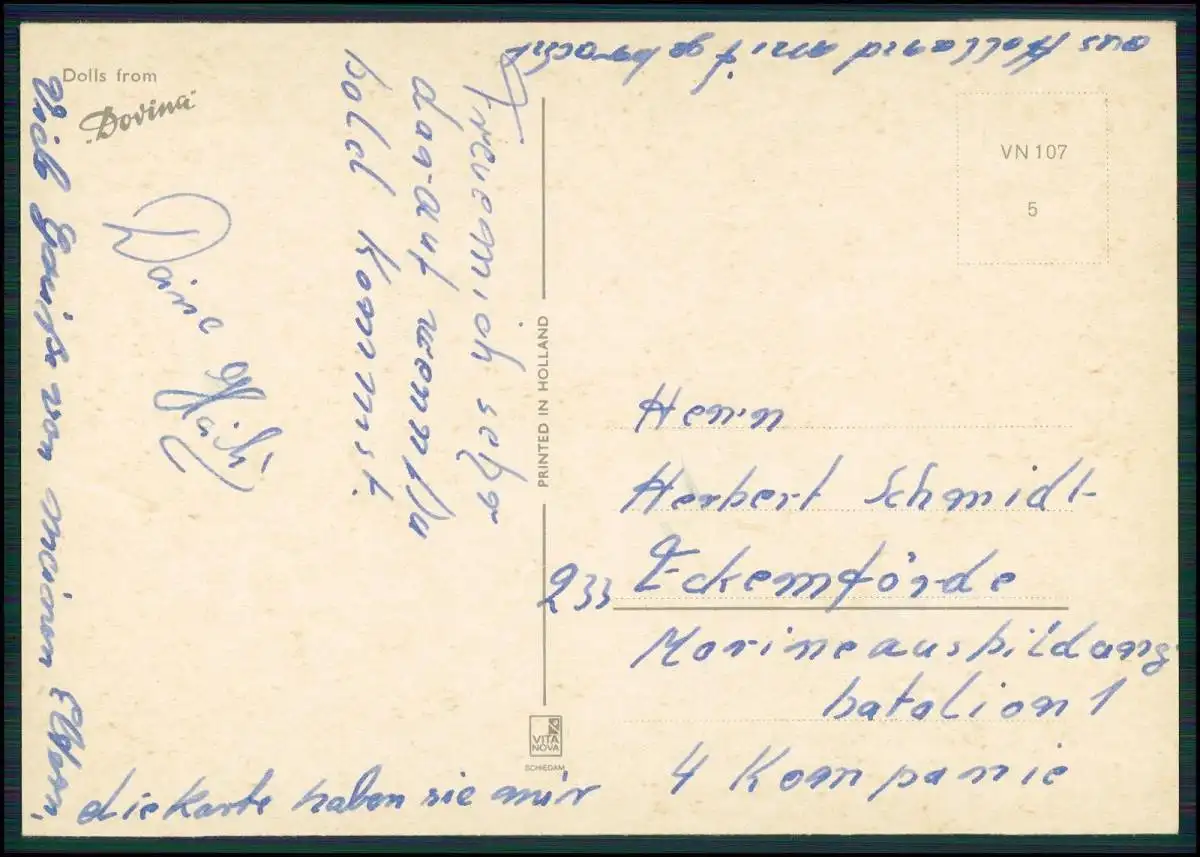 Dolls from
Dovina
Freue mich sehr
darauf wenn Du
bald kommst.
Deine
Viele von meinen Eltern,
die Karte haben sie mir
aus Holland mit gebracht
PRINTED IN HOLLAND
VITA
NOVA
SCHIEDAM
VN 107
5
Herrn
Herbert Schmidt
233 Eckernförde
Marineausbildungs
batalion 1
4 Kompanie